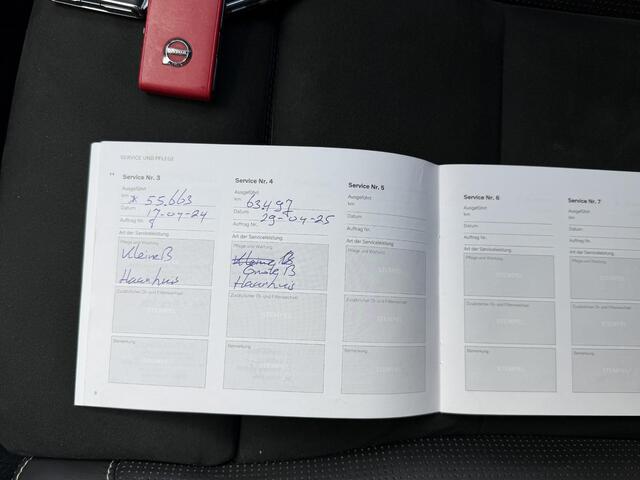 SERVICE UND PFLEGE
Service Nr. 3
Ausgeführt
km 55.663
Datum 17-04-24
Auftrag Nr.
Art der Serviceleistung:
Pflege und Wartung
Kleine B
Haarhuis
Zusätzlicher Öl- und Filterwechsel
STEMPEL
Bemerkung
Service Nr. 4
Ausgeführt
km 63.497
Datum 29-04-25
Auftrag Nr.
Art der Serviceleistung:
Pflege und Wartung
Kleine B
Grote B
Haarhuis
Zusätzlicher Öl- und Filterwechsel
STEMPEL
Bemerkung
STEMPEL
Service Nr. 5
Ausgeführt
km
Datum
Auftrag Nr.
Art der Serviceleistung:
Pflege und Wartung
STEMPEL
Zusätzlicher Öl- und Filterwechsel
STEMPEL
Bemerkung
STEMPEL
Service Nr. 6
Ausgeführt
km
Datum
Auftrag Nr.
Art der Serviceleistung:
Pflege und Wartung
STEMPEL
Zusätzlicher Öl- und Filterwechsel
STEMPEL
Bemerkung
STEMPEL
Service Nr. 7
Ausgeführt
km
Datum
Auftrag Nr.
Art der Serviceleistung:
Pflege und Wartung
Zusätzlicher Öl- und Filterwechsel
STEMPEL
Bemerkung
STEMPEL